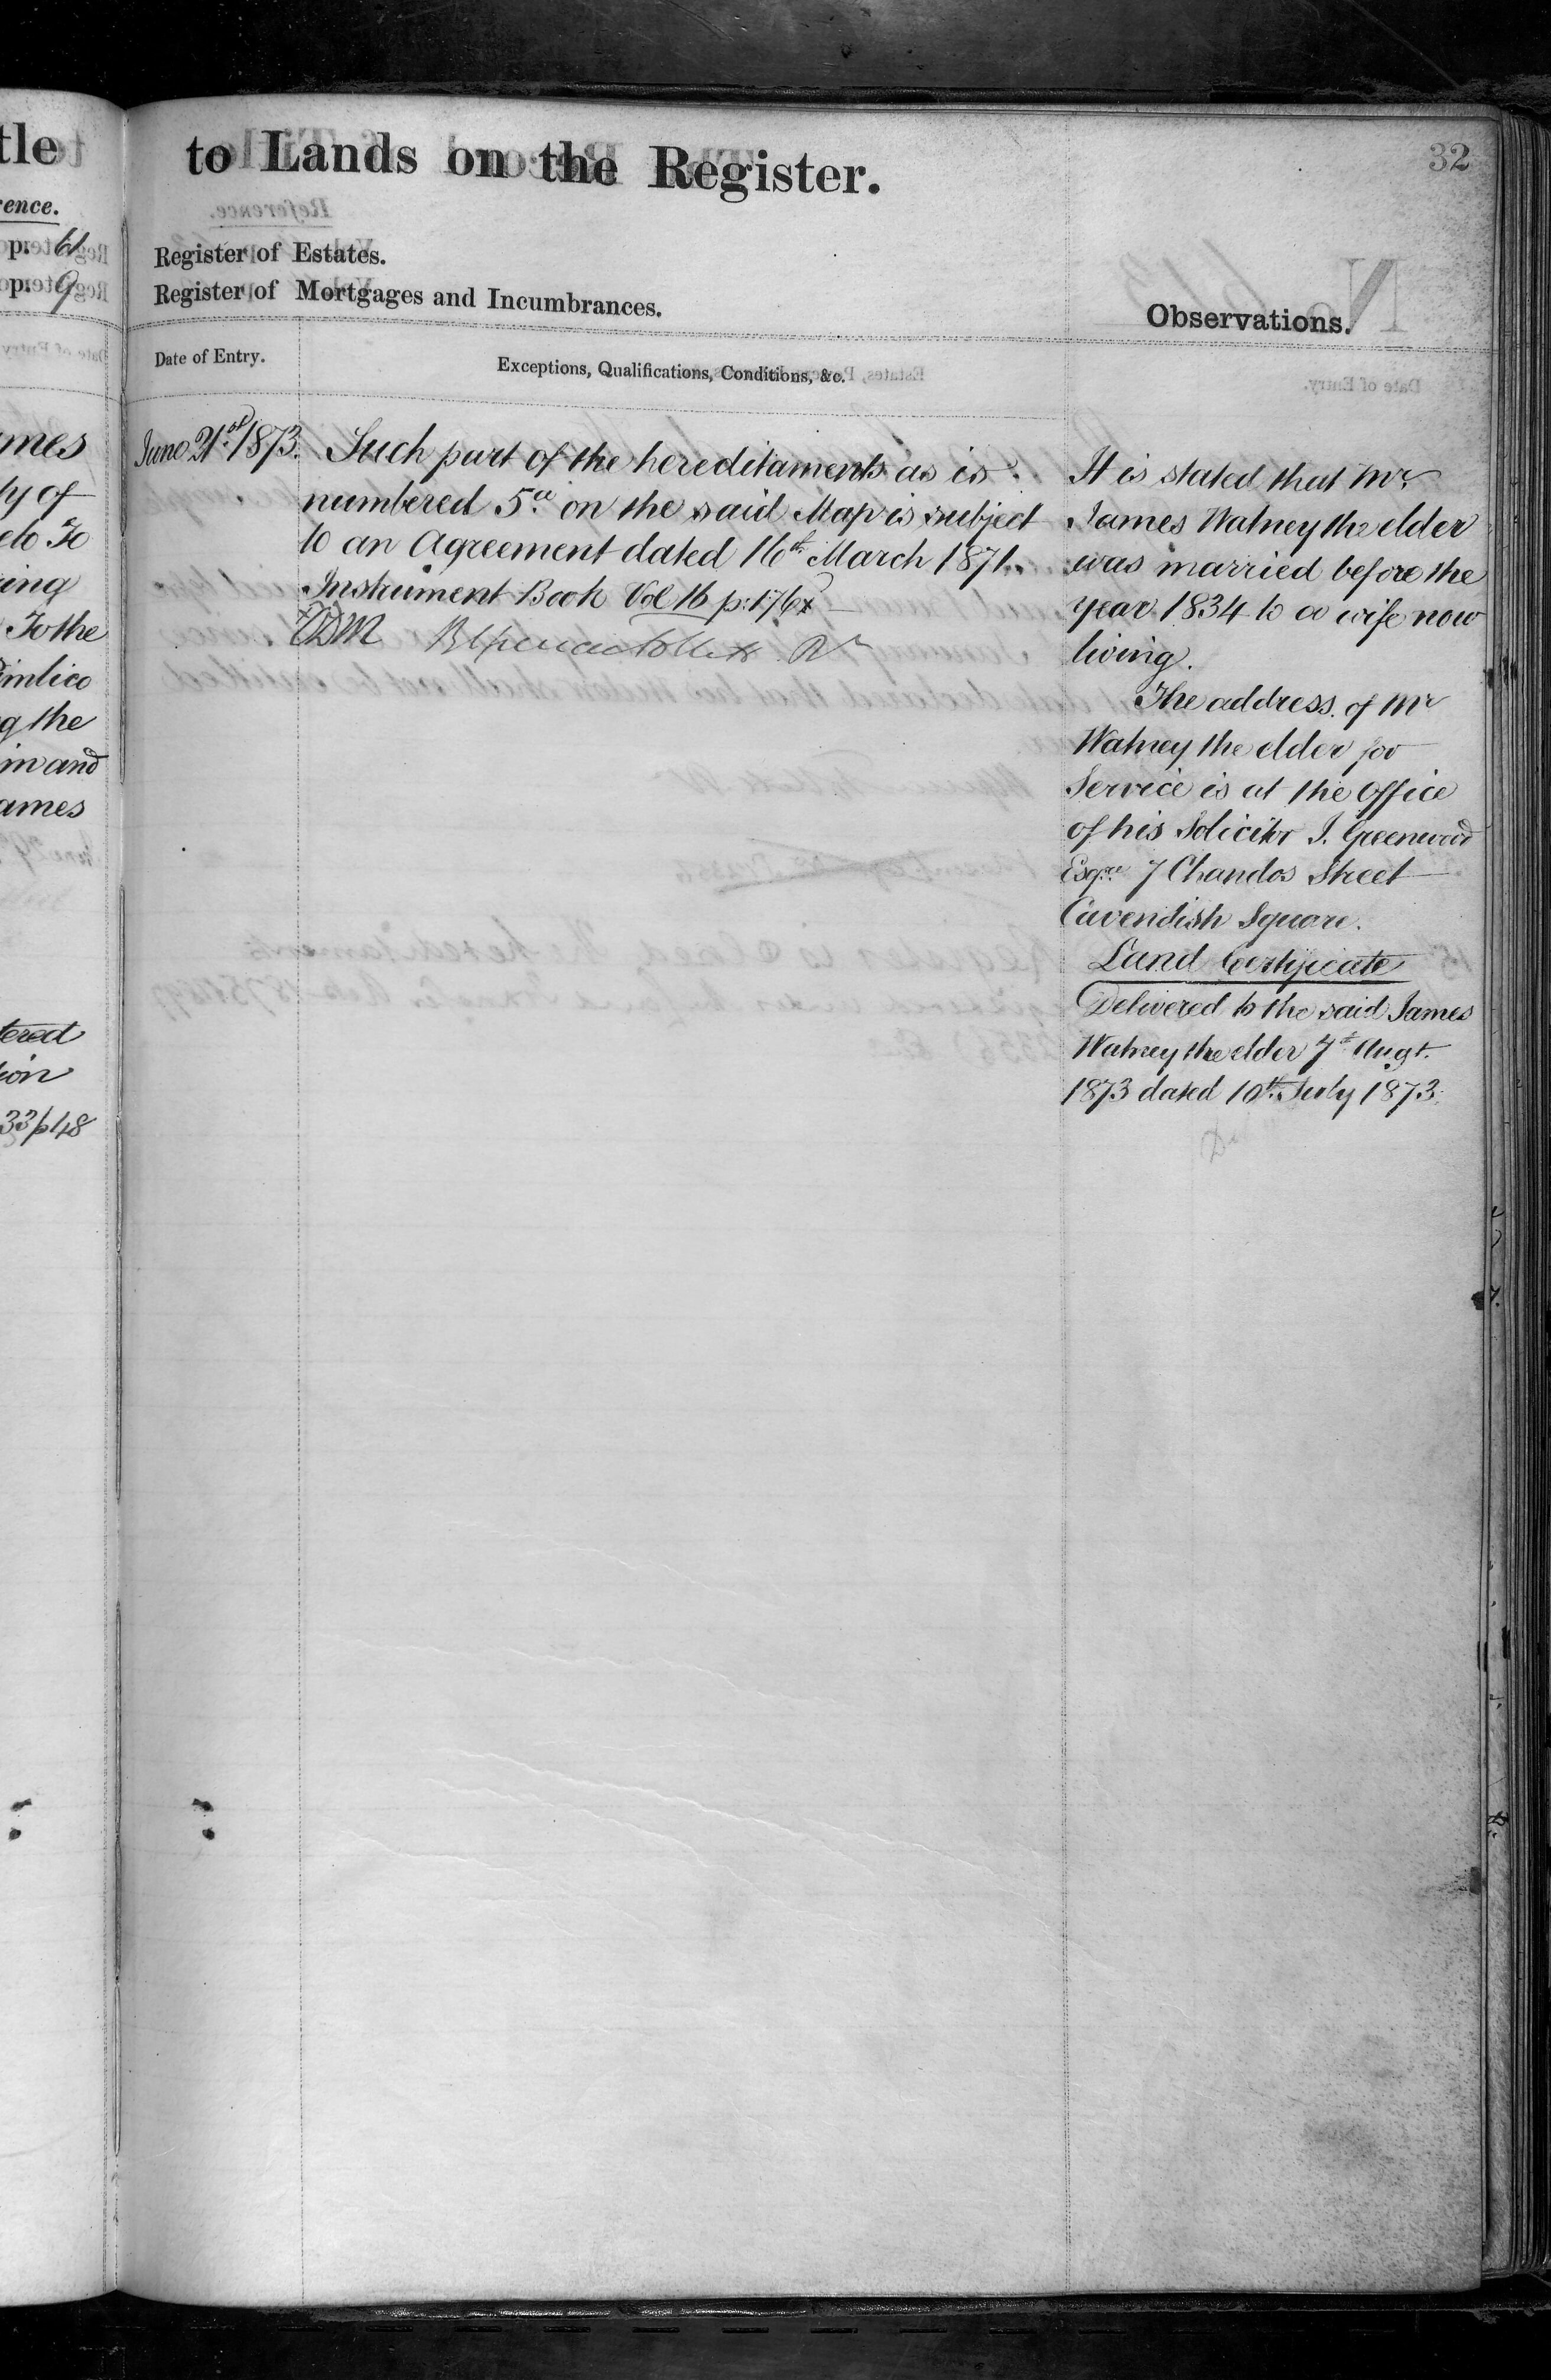 tle
ence.
p. 61
p. 9
mes
ty of
ing
To the
imlico
g the
in and
ames
tered
ion
33 p 148
to Lands on the Register.
32
Register of Estates.
Register of Mortgages and Incumbrances.
Observations.
Date of Entry.
Exceptions, Qualifications, Conditions, &c.
June 21st 1873.
Such part of the hereditaments as is
numbered 5a on the said Map is subject
to an Agreement dated 16th March 1871.
Instrument Book Vol 16 p: 176
It is stated that Mr
James Watney the elder
was married before the
year 1834 to a wife now
living.
The address of Mr
Watney the elder for
Service is at the Office
of his Solicitor J. Greenwood
Esqre 7 Chandos Street
Cavendish Square.
Land Certificate
Delivered to the said James
Watney the elder 7th Augt.
1873 dated 10th July 1873.